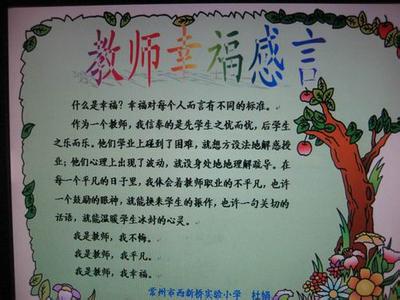 教师幸福感言
什么是幸福？幸福对每个人而言有不同的标准。
作为一个教师，我信奉的是先学生之忧而忧，后学生
之乐而乐。他们学业上碰到了困难，就想方设法地解惑授
业；他们心理上出现了波动，就设身处地地理解疏导。在
每一个平凡的日子里，我体会着教师职业的不平凡，也许
一个鼓励的眼神，就能换来学生的振作，也许一句关切的
话语，就能温暖学生冰封的心灵。
我是教师，我不悔。
我是教师，我平凡。
我是教师，我幸福。
常州市西新桥实验小学 杜娟